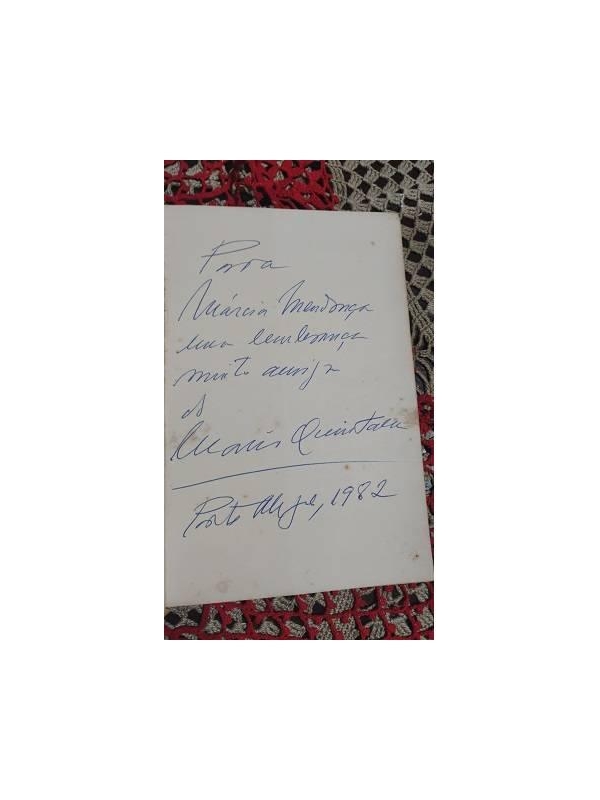 Para
Márcia Mendonça
uma lembrança
muito amiga
do
Mario Quintana
Porto Alegre, 1982